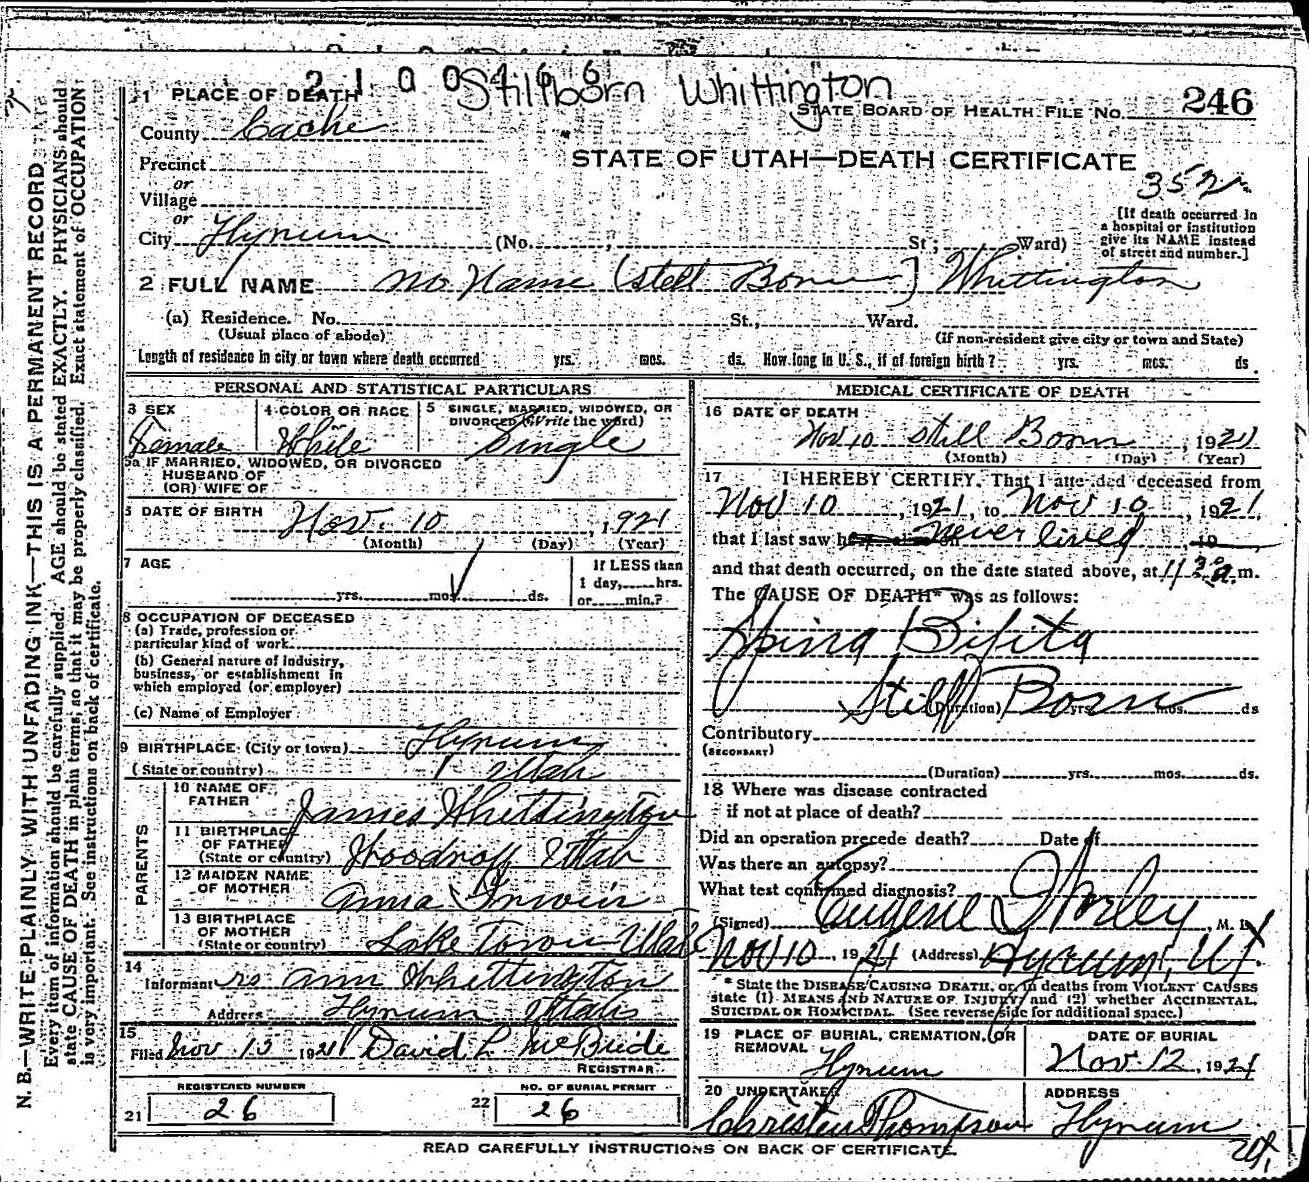 2 1 0 0 4 6 6
Stillborn Whittington
1 PLACE OF DEATH
STATE BOARD OF HEALTH FILE NO. 246
County Cache
STATE OF UTAH—DEATH CERTIFICATE
352
Precinct
or
Village
or
City Hyrum (No. , St.; Ward)
[If death occurred in
a hospital or institution
give its NAME instead
of street and number.]
2 FULL NAME No Name (Still Born) Whittington
(a) Residence. No. St., Ward.
(Usual place of abode) (If non-resident give city or town and State)
Length of residence in city or town where death occurred yrs. mos. ds. How long in U. S., if of foreign birth? yrs. mos. ds
PERSONAL AND STATISTICAL PARTICULARS
3 SEX 4 COLOR OR RACE 5 SINGLE, MARRIED, WIDOWED, OR
DIVORCED (Write the word)
Female White Single
5a IF MARRIED, WIDOWED, OR DIVORCED
HUSBAND OF
(OR) WIFE OF
6 DATE OF BIRTH Nov. 10, 1921
(Month) (Day) (Year)
7 AGE If LESS than
1 day, hrs.
yrs. mos. ds. or min.?
8 OCCUPATION OF DECEASED
(a) Trade, profession or
particular kind of work
(b) General nature of Industry,
business, or establishment in
which employed (or employer)
(c) Name of Employer
9 BIRTHPLACE (City or town) Hyrum
(State or country) Utah
PARENTS
10 NAME OF
FATHER James Whittington
11 BIRTHPLACE
OF FATHER
(State or country) Woodruff Utah
12 MAIDEN NAME
OF MOTHER Anna Irwin
13 BIRTHPLACE
OF MOTHER
(State or country) Lake Town Utah
14
Informant rs Ann Whittington
Address Hyrum Utah
15
Filed Nov 13 1921 David L McBride
REGISTRAR
REGISTERED NUMBER NO. OF BURIAL PERMIT
21 26 22 26
MEDICAL CERTIFICATE OF DEATH
16 DATE OF DEATH
Nov 10 Still Born, 1921
(Month) (Day) (Year)
17 I HEREBY CERTIFY, That I attended deceased from
Nov 10, 1921, to Nov 10, 1921,
that I last saw h never lived, 19
and that death occurred, on the date stated above, at 11 30 a.m.
The CAUSE OF DEATH* was as follows:
Spina Bifita
Still Born
(Duration) yrs. mos. ds
Contributory
(SECONDARY)
(Duration) yrs. mos. ds.
18 Where was disease contracted
if not at place of death?
Did an operation precede death? Date of
Was there an autopsy?
What test confirmed diagnosis?
(Signed) Eugene Worley, M. D.
Nov 10, 1921 (Address) Hyrum, Ut
* State the DISEASE CAUSING DEATH, or in deaths from VIOLENT CAUSES
state (1) MEANS AND NATURE OF INJURY; and (2) whether ACCIDENTAL,
SUICIDAL OR HOMICIDAL. (See reverse side for additional space.)
19 PLACE OF BURIAL, CREMATION, OR
REMOVAL DATE OF BURIAL
Hyrum Nov. 12, 1921
20 UNDERTAKER ADDRESS
Christen Thompson Hyrum
READ CAREFULLY INSTRUCTIONS ON BACK OF CERTIFICATE.
N. B.—WRITE PLAINLY WITH UNFADING INK—THIS IS A PERMANENT RECORD
Every item of information should be carefully supplied. AGE should be stated EXACTLY. PHYSICIANS should
state CAUSE OF DEATH in plain terms, so that it may be properly classified. Exact statement of OCCUPATION
is very important. See instructions on back of certificate.